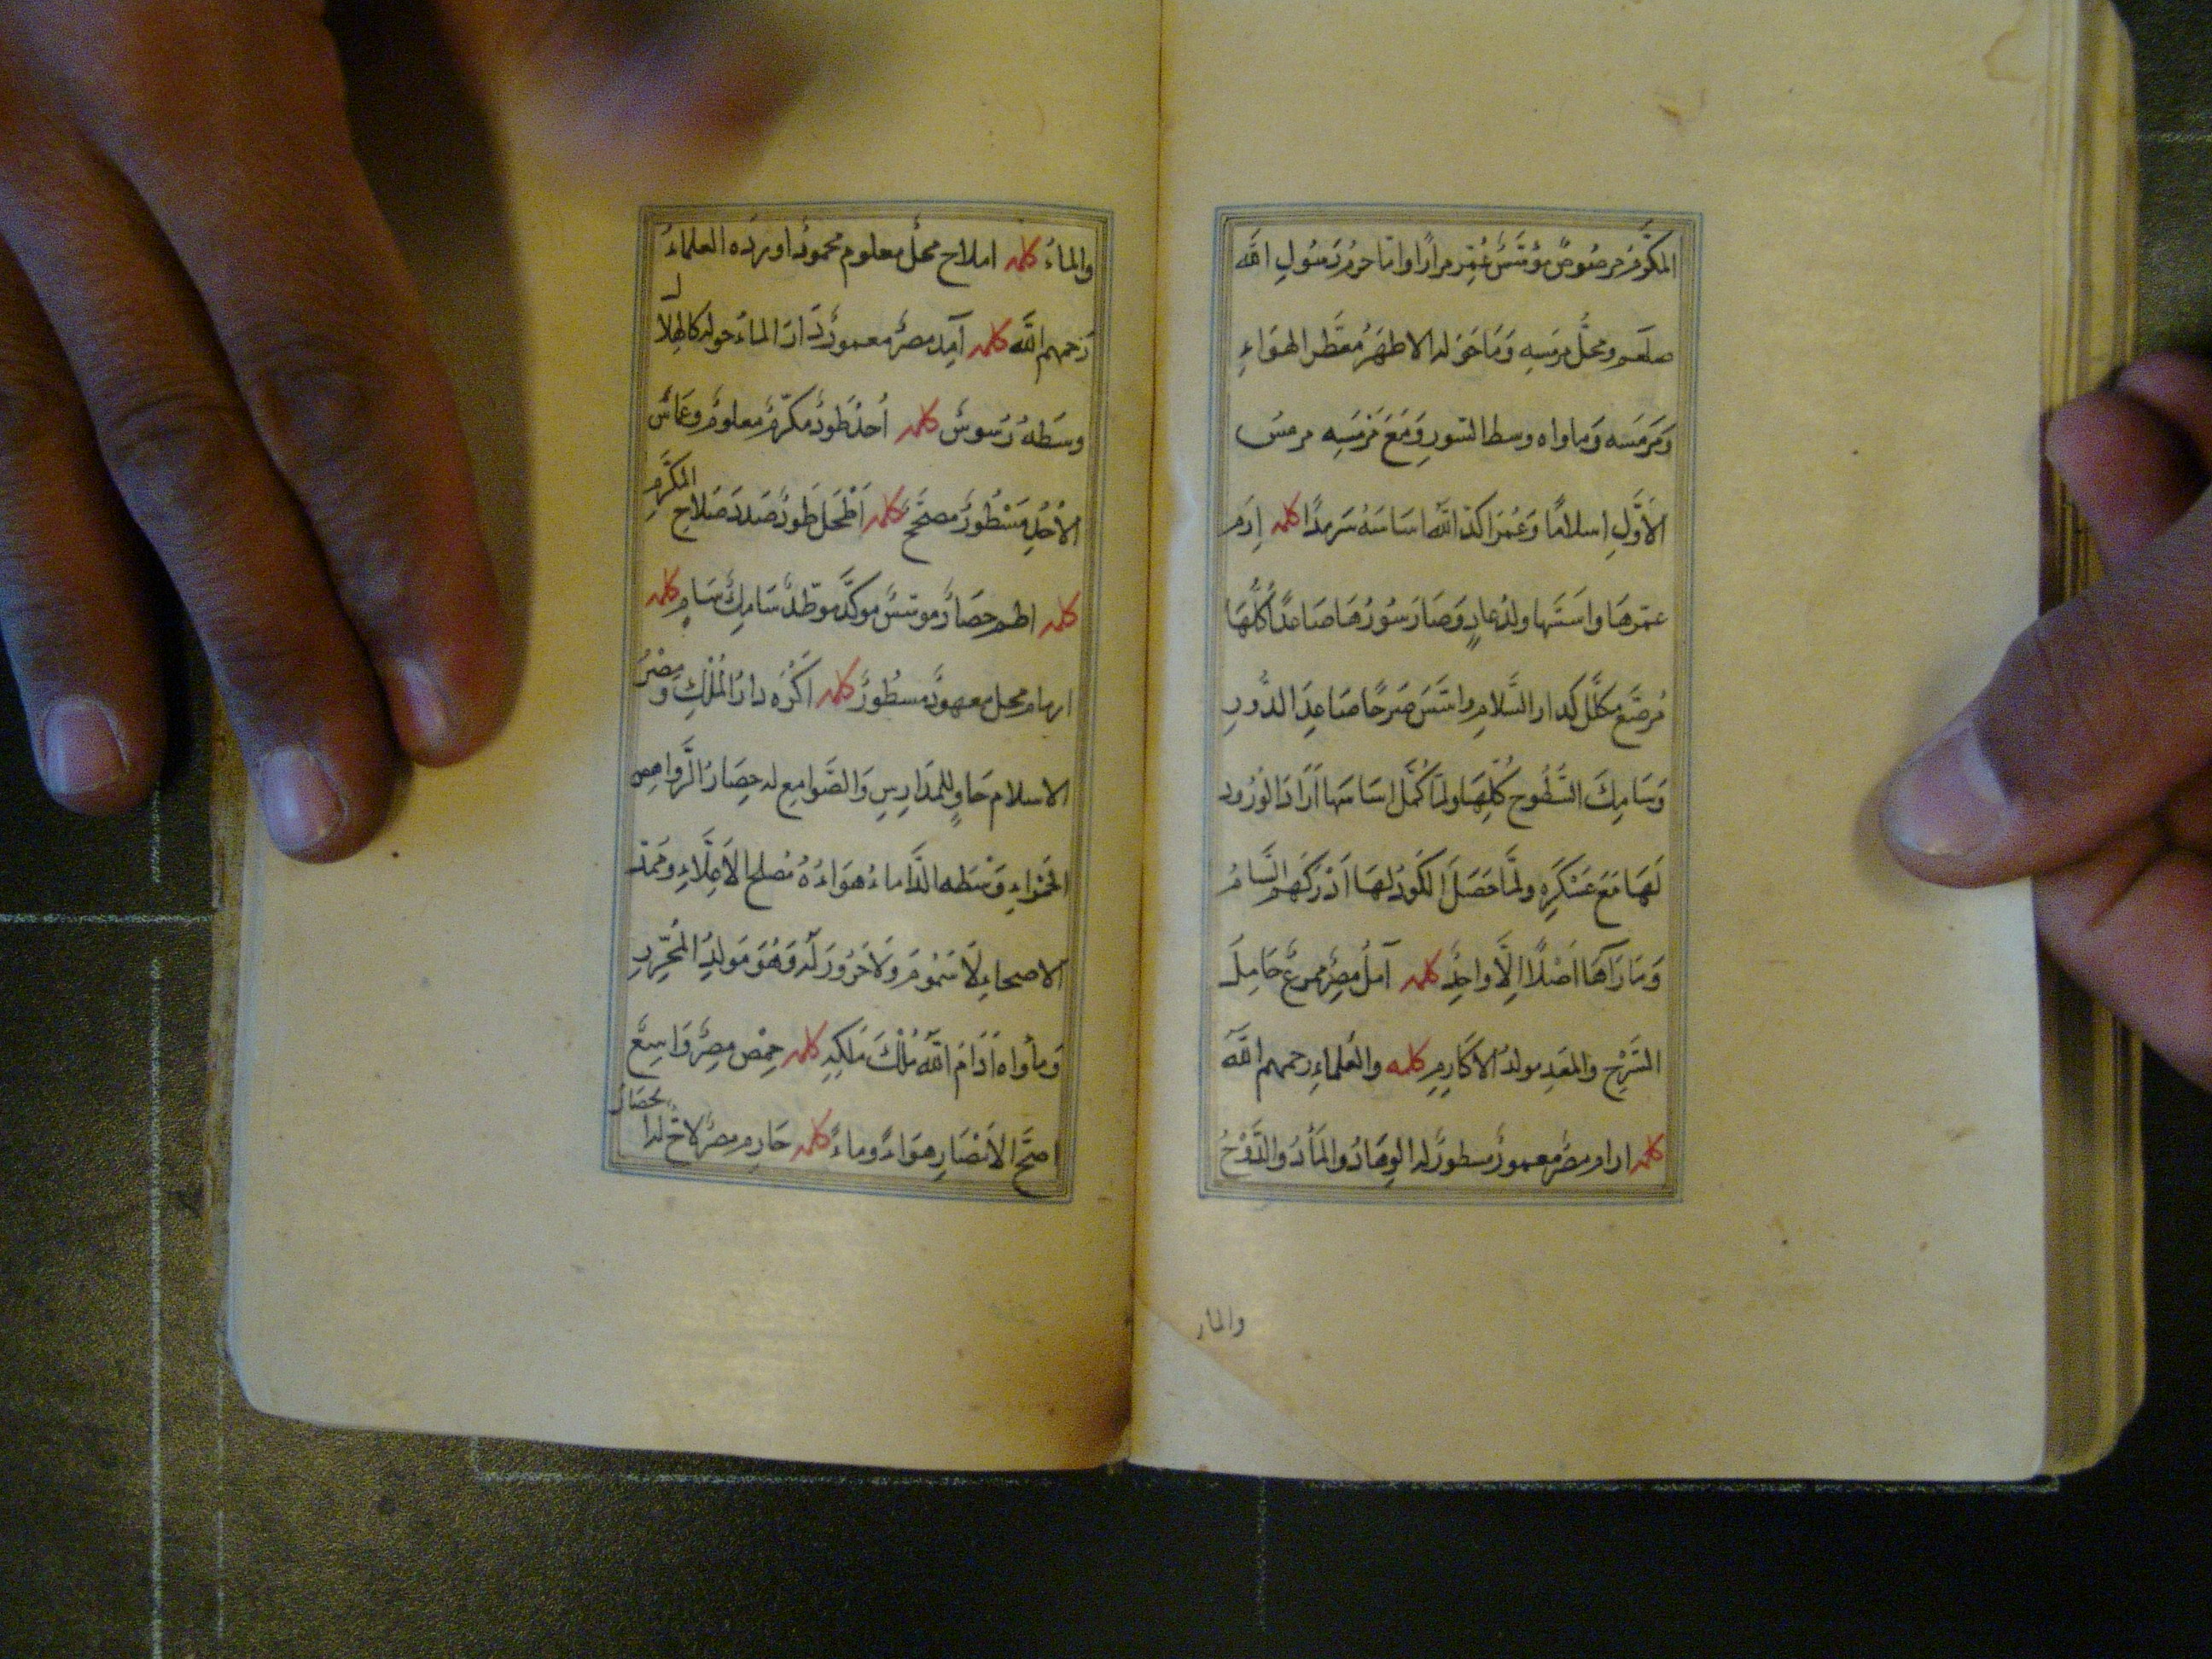 المكرّم مرصوص مؤسّس عُمّر مرارًا وامّا حرم رسول الله
صلعم ومحلّ مرمسه وما حوله الاطهر معطّر الهواء
ومرمسه وماواه وسط السور ومع مرمسه مرمس
الاوّل اسلامًا وعُمر اكد الله اساسه سرمدًا كلمه اِرَم
عمّرها واسّسها ولد عادٍ وصار سورها صاعدًا كلّها
مُرصّع مكلّل كدار السّلام واسّس صرحًا صاعد الدّور
وسامك السّطوح كلّها ولمّا كمّل اساسها اَرَادَ الورُود
لَهَا مَعَ عَسْكَرِهِ ولمّا حَصَلَ الكَودُ لهَا اَدْرَكَهم السّامُ
وَمَا رَآهَا اَصْلًا اِلَّا واحِدٌ كلمه آمل مِصرٌ ممرعٌ حَامِلُ
السَّرْحِ وَالمَعَدِ مولدُ الاَكَارِمِ كلمه والعُلماءِ رحمهم اللهُ
كلمه ارام مصرٌ معمورٌ مسطورٌ له الوِهَادُ والمَأدُ والدَّوْحُ
والمار
والماءُ كلمه املاح محلٌّ معلوم محمودٌ اورده العلماءُ
رحمهم اللهُ كلمه آمد مصرٌ معمورٌ دَارَ الماءُ حوله كالهِلال
وسَطهُ رَسوسٌ كلمه اُحدٌ طَودٌ مكرّمٌ معلومٌ وعَاسٌ
الاُحُدِ مَسْطُورٌ مصحّحٌ كلمه اَطْحَل طَودٌ صَدَدَ صَلاحِ المكرّمِ
كلمه اطم حصارٌ موسّسٌ موكّدٌ موطّدٌ سَامِكٌ سَامٍ كلمه
ارهام محل معهودٌ مسطورٌ كلمه اكْرَه دارُ المُلْكِ ومِصْرُ
الاسلام حَاوٍ للمدَارِسِ وَالصَّوامِعِ له حِصَارُ الرَّواهِصِ
الحَمْراءِ وَسْطه الدَّاماءُ هَوَاءُهُ مُصلح الاَعِلّاءِ ومُمدّ
الاصحاءِ لَا سَمُومَ وَلَا حَرُورَ لَه وَهُوَ مَولِدُ المُحَرِّرِ
وَمأواه اَدَامَ اللهُ مُلْكَ مَلِكِهِ كلمه حِمْص مِصرٌ وَاسِعٌ
اصحّ الاَمْصَارِ هوَاءً وماءً كلمه حَارِم مصرٌ لاحٌ له حصَارٌ